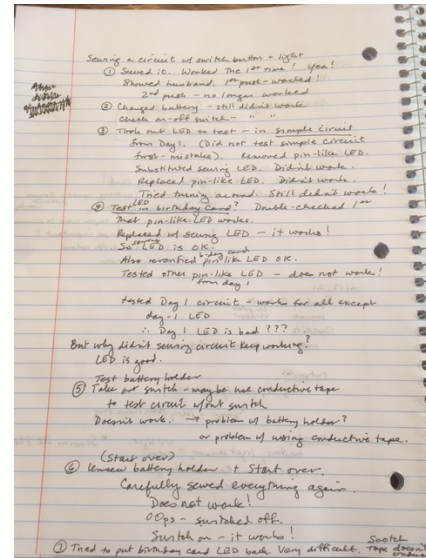 Sewing a circuit w/ switch button + light
① Sewed it. Worked the 1st time! Yea!
Showed husband. 1st push - worked!
2nd push - no longer worked
② Changed battery - still didn't work
check on-off switch - " "
③ Took out LED to test - in simple circuit
from Day 1. (Did not test simple circuit
first - mistake). Removed pin-like LED.
Substituted sewing LED. Didn't work.
Replaced pin-like LED. Didn't work.
Tried turning around. Still didn't work!
④ Test LED in birthday card? Double-checked 1st
that pin-like LED works.
Replaced w/ sewing LED - it works!
So sewing LED is OK.
Also reverified b-day card pin like LED OK.
Tested other pin-like LED - does not work!
from day 1
tested Day 1 circuit - work for all except
day-1 LED
∴ Day 1 LED is bad ???
But why didn't sewing circuit keep working?
LED is good.
Test battery holder
⑤ Take out switch - maybe use conductive tape
to test circuit w/out switch
Doesn't work. → problem w/ battery holder?
or problem w/ using conductive tape.
(Start over)
⑥ Unsew battery holder + Start over.
Carefully sewed everything again.
Does not work!
OOps - switched off.
Switch on - it works!
⑦ Tried to put birthday card LED back. Very difficult. Scotch tape doesn't